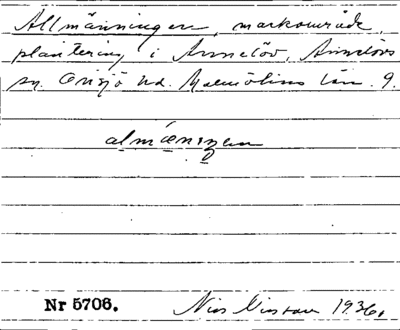 Allmänningen, markområde,
plantering i Annelöv, Annelövs
sn. Onsjö hd. Malmöhus län. 9.
almæningen
Nr 5706.
Nils 1936.